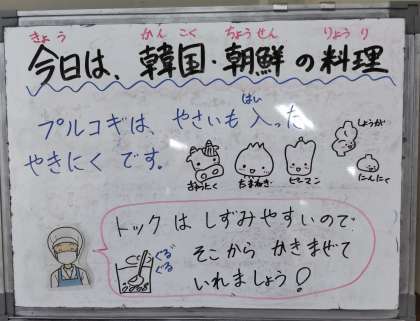 きょう かんこく ちょうせん りょうり
今日は、韓国・朝鮮の料理
プルコギは、やさいも入った
はい
やきにくです。
おにく
たまねぎ
ピーマン
しょうが
にんにく
トックはしずみやすいので
そこからかきまぜて
いれましょう!
ぐる
ぐる